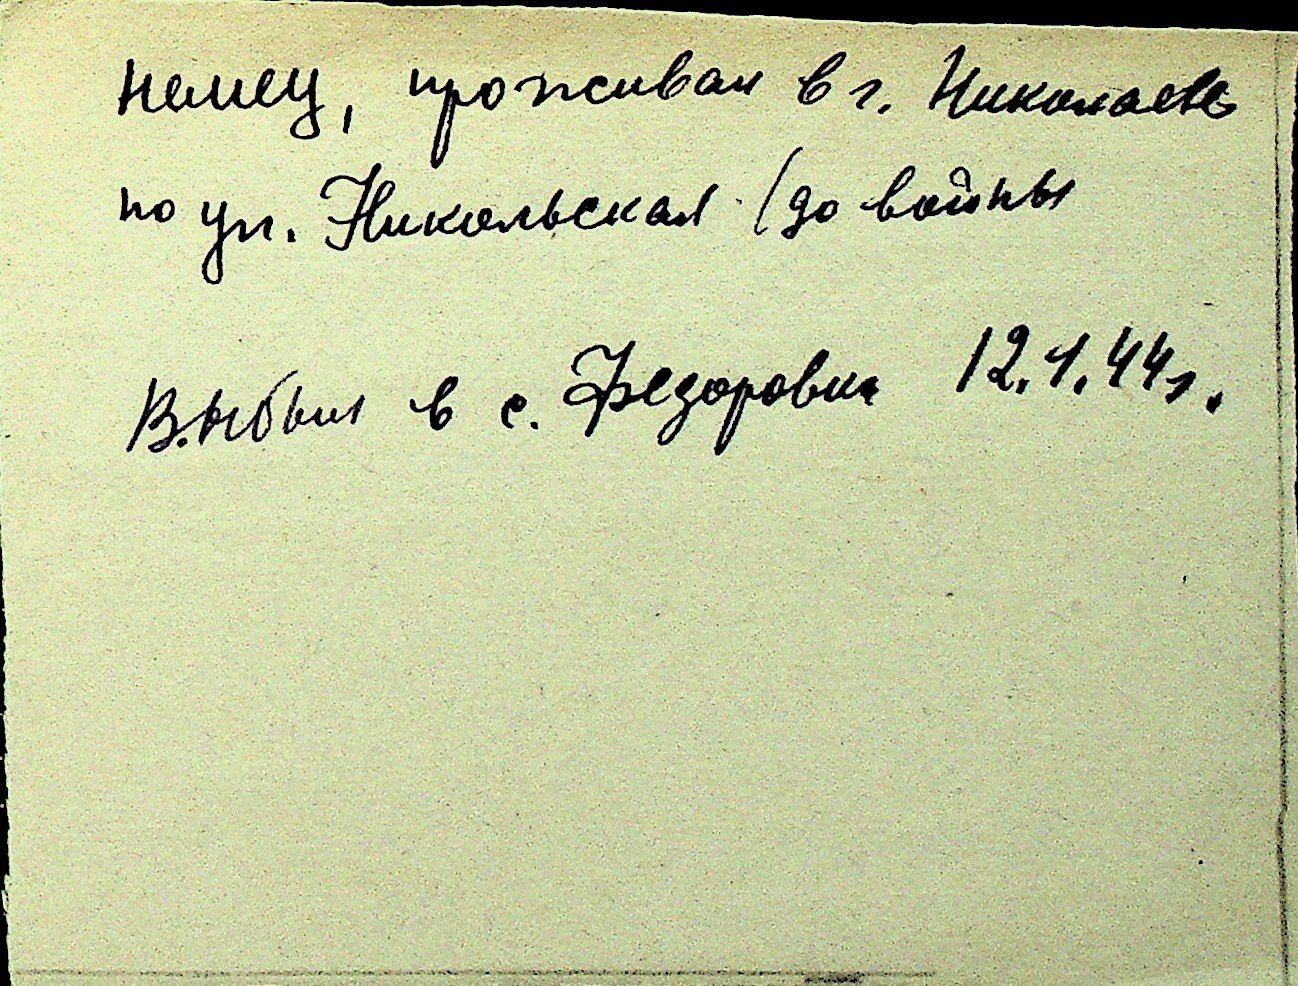 немец, проживал в г. Николаеве
по ул. Никольская (до войны
Выбыл в с. Федоровка 12.1.44г.